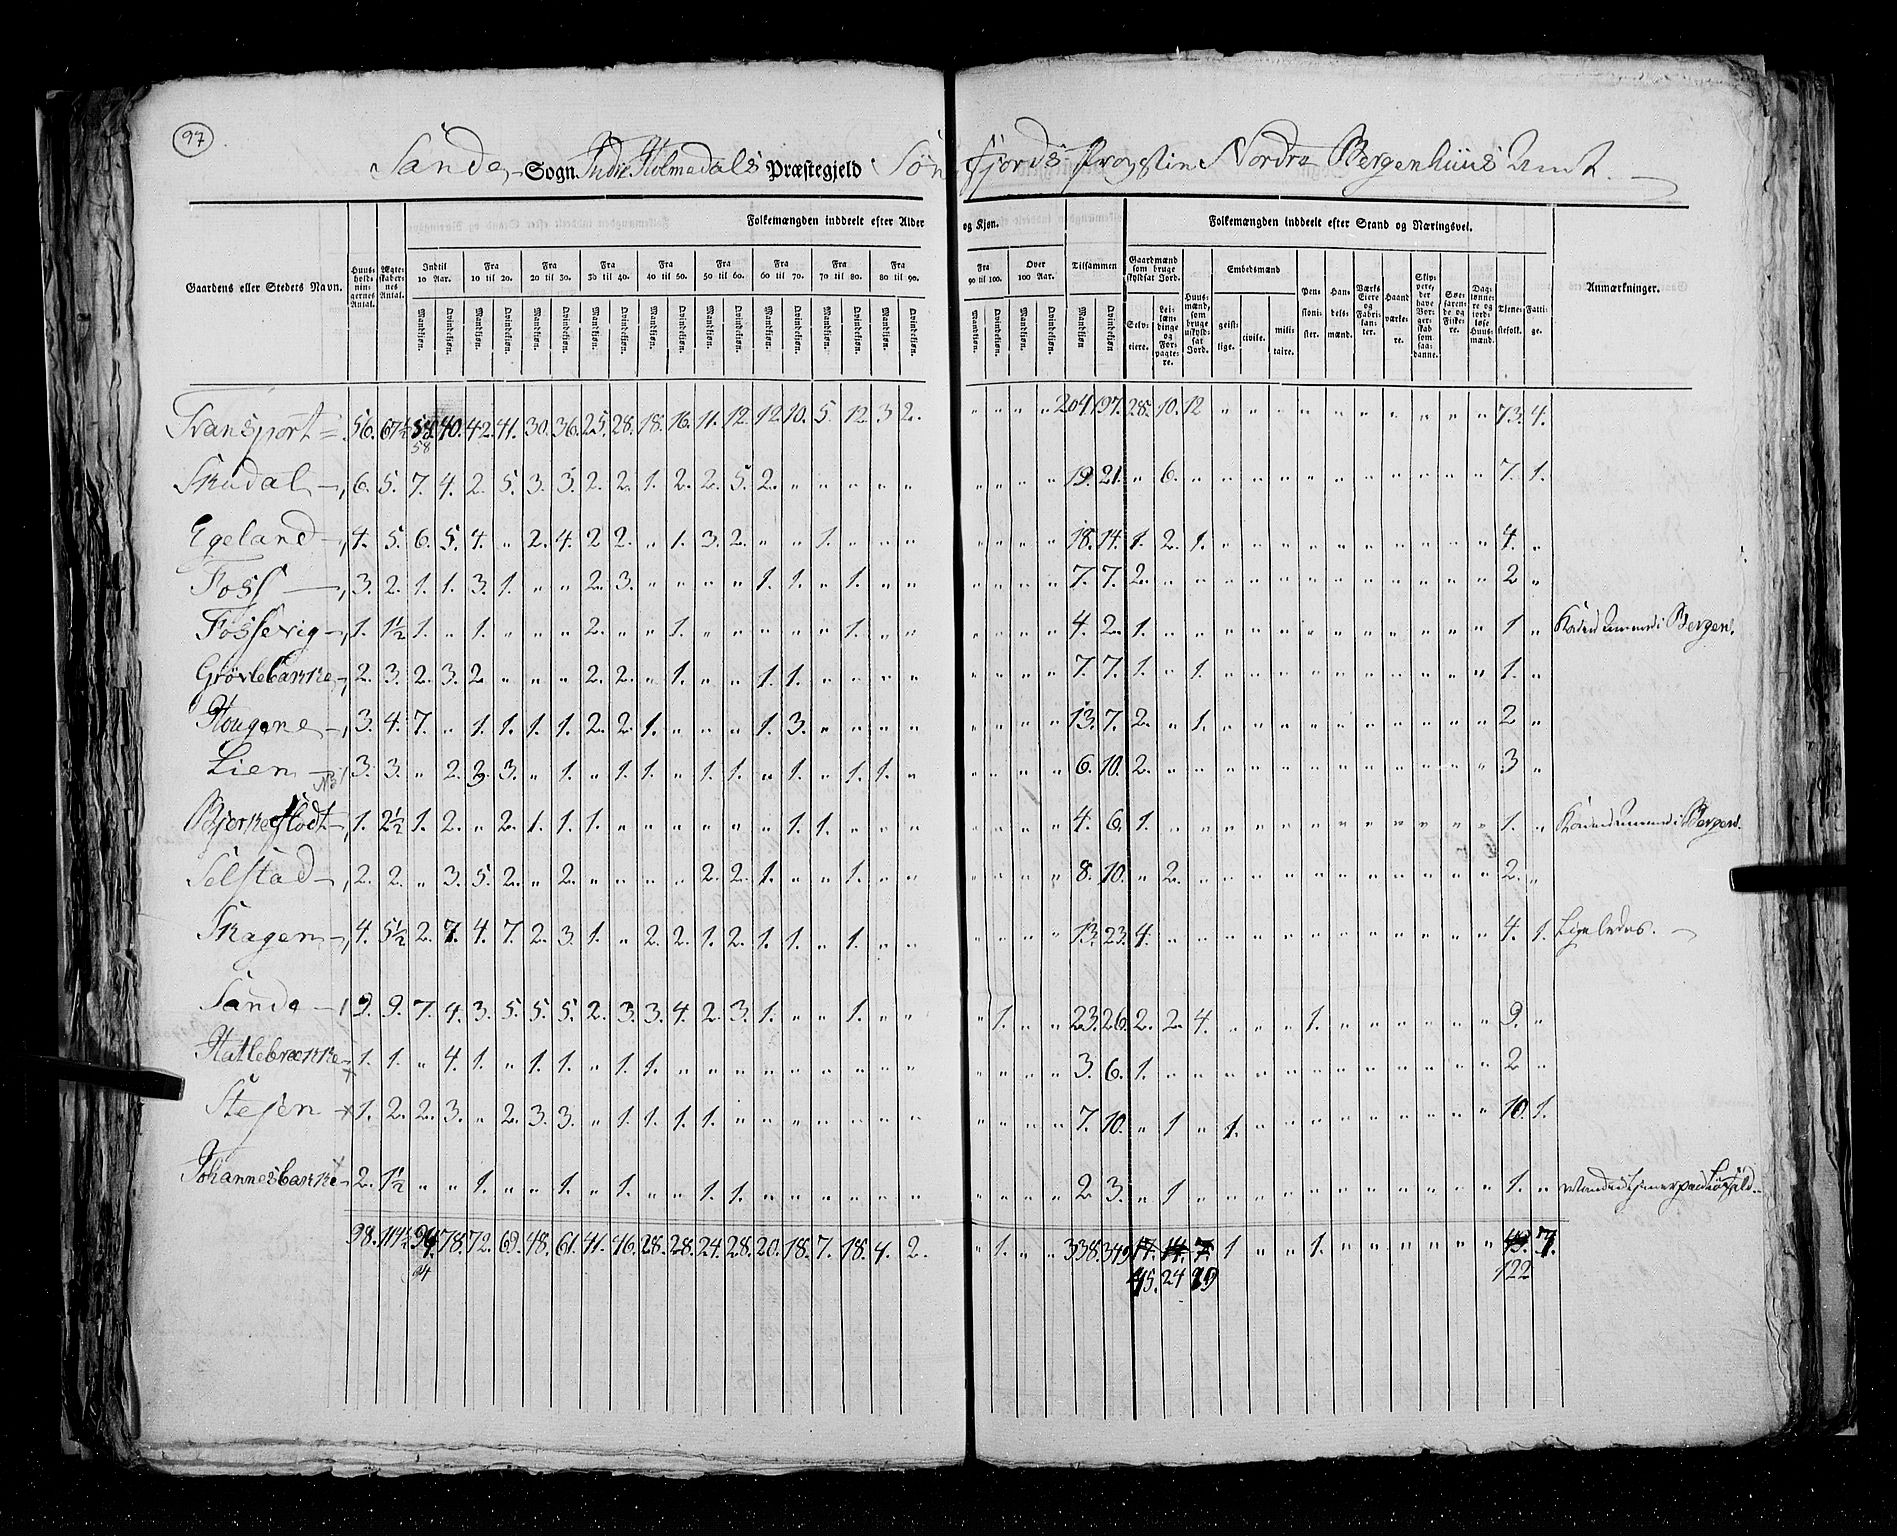 97
Sande Sogn Indre Holmedals Præstegjeld Sønfjords Provstie Nordre Bergenhuus Amt.
Folkemængden inddeelt efter Alder og Kjøn. Folkemængden inddeelt efter Stand og Næringsvei.
Gaardens eller Stedets Navn. Huusholdningernes Antal. Ægteskabernes Antal. Indtil 10 Aar. Fra 10 til 20. Fra 20 til 30. Fra 30 til 40. Fra 40 til 50. Fra 50 til 60. Fra 60 til 70. Fra 70 til 80. Fra 80 til 90. Fra 90 til 100. Over 100 Aar. Tilsammen Gaardmænd som bruge skyldsat Jord. Huusmænd, som bruge uskyldsat Jord. Embedsmænd Pensionister. Handelsmænd. Værks Eiere og Fabrikanter. Haandværkere. Skippere, der have Borgerskab som saadanne. Søefarende og Fiskere. Daglønnere og jordløse Huusmænd. Tjenestefolk. Fattige. Anmærkninger.
Mandkjøn. Qvindekjøn. Mandkjøn. Qvindekjøn. Mandkjøn. Qvindekjøn. Mandkjøn. Qvindekjøn. Mandkjøn. Qvindekjøn. Mandkjøn. Qvindekjøn. Mandkjøn. Qvindekjøn. Mandkjøn. Qvindekjøn. Mandkjøn. Qvindekjøn. Mandkjøn. Qvindekjøn. Mandkjøn. Qvindekjøn. Mandkjøn Qvindekjøn Selveiere. Leilændinge og Forpagtere. geistlige. civile. militaire.
Transport = 56. 67½ 58 40. 42. 41. 30. 36. 25. 28. 18. 16. 11. 12. 12. 10. 5. 12. 3 2. " " " " 204 197. 28. 10. 12 " " " " " " " " " " 73. 4.
58
Skudal 6. 5. 7. 4. 2. 5. 3. 3. 2. 2. 1. 2. 2. 5. 2. " " " " " " " " " 19. 21. " 6. " " " " " " " " " " " 7. 1.
Egeland 4. 5. 6. 5. 4. " 2. 4. 2 2. " 1. 3. 2. " " 1. " " " " " " " 18. 14. 1. 2. 1. " " " " " " " " " " 4. "
Foss 3. 2. 1. 1. 3. 1. " " 2. 3. " " " " 1. 1. " 1. " " " " " " 7. 7. 2. " " " " " " " " " " " " 2 "
Fossevig 1. 1½ 1. " 1. " " " 2. " " 1. " " " " " 1. " " " " " " 4. 2. 1. " " " " " " " " " " " " 1 " i Bergen.
Grøvlebakke 2. 3. 2. 3. 2 " " " 2. 2. " 1. " " 1. 1. " " " " " " " " 7. 7. 1. " 1. " " " " " " " " " " 1. "
Hougene 3. 4. 7. " 1. 1. 1. 1. 2. 2. 1. " " " 1. 3. " " " " " " " " 13. 7. 2. " 1. " " " " " " " " " " 2 "
Lien 3. 3. " 2. 3. " 1. " 1. 1. " 1. 1. " 1. " 1. 1. " " " " " 6. 10. 2. " " " " " " " " " " " " 3 "
Bjerkeflodt 1. 2½ 1. 2. " 2. 1. 1. 1. " " " " " " 1. 1. " " " " " " " 4. 6. 1. " " " " " " " " " " " " 1. " i Bergen.
Selstad 2. 2. " 3. 5. 2. " 2. " " " " 2. 2. 1. " " 1. " " " " " " 8. 10. " 2. " " " " " " " " " " " 2. "
Skagen 4. 5½ 2. 7. 4. 7. 2. 3. 1. " 2. 2. 1. 2. 1. 1. " 1. " " " " " " 13. 23. 4. " " " " " " " " " " " " 4. 1. Ligeledes.
Sande 9. 9. 7. 4. 3. 5. 5. 5. 2. 3. 3. 4. 2. 3. 1. " " 1. " " " 1. " " 23. 26. 2. 2. 4. " " " 1. " " " " " " 9. "
Hatlebrække 1. 1. " 4. 1. " 1. 1. " 1. 1. " " " " " " " " " " " " " 3. 6. 1. " " " " " " " " " " " " 2 "
Stejen 1. 2. 2. 3. " 2. 3. 3. " 1. 1. 1. 1. " " " " " " " " " " " 7. 10. " 1 " 1. " " " " " " " " " 10. 1.
Johannesbakke 2. 1½ " " 1. " " 1. " 1. " " 1. 1. " " " " " " " " " " 2 3. " 1 " " " " " " " " " " " 1. "
98. 114½ 94 78. 72. 69. 48. 61. 41. 46. 28. 28. 24. 28. 20. 18. 7. 18. 4. 2. " 1. " " 338. 349 17. 14. 7. 1 " " 1. " " " " " " 43. 7.
94 45. 24 19 122